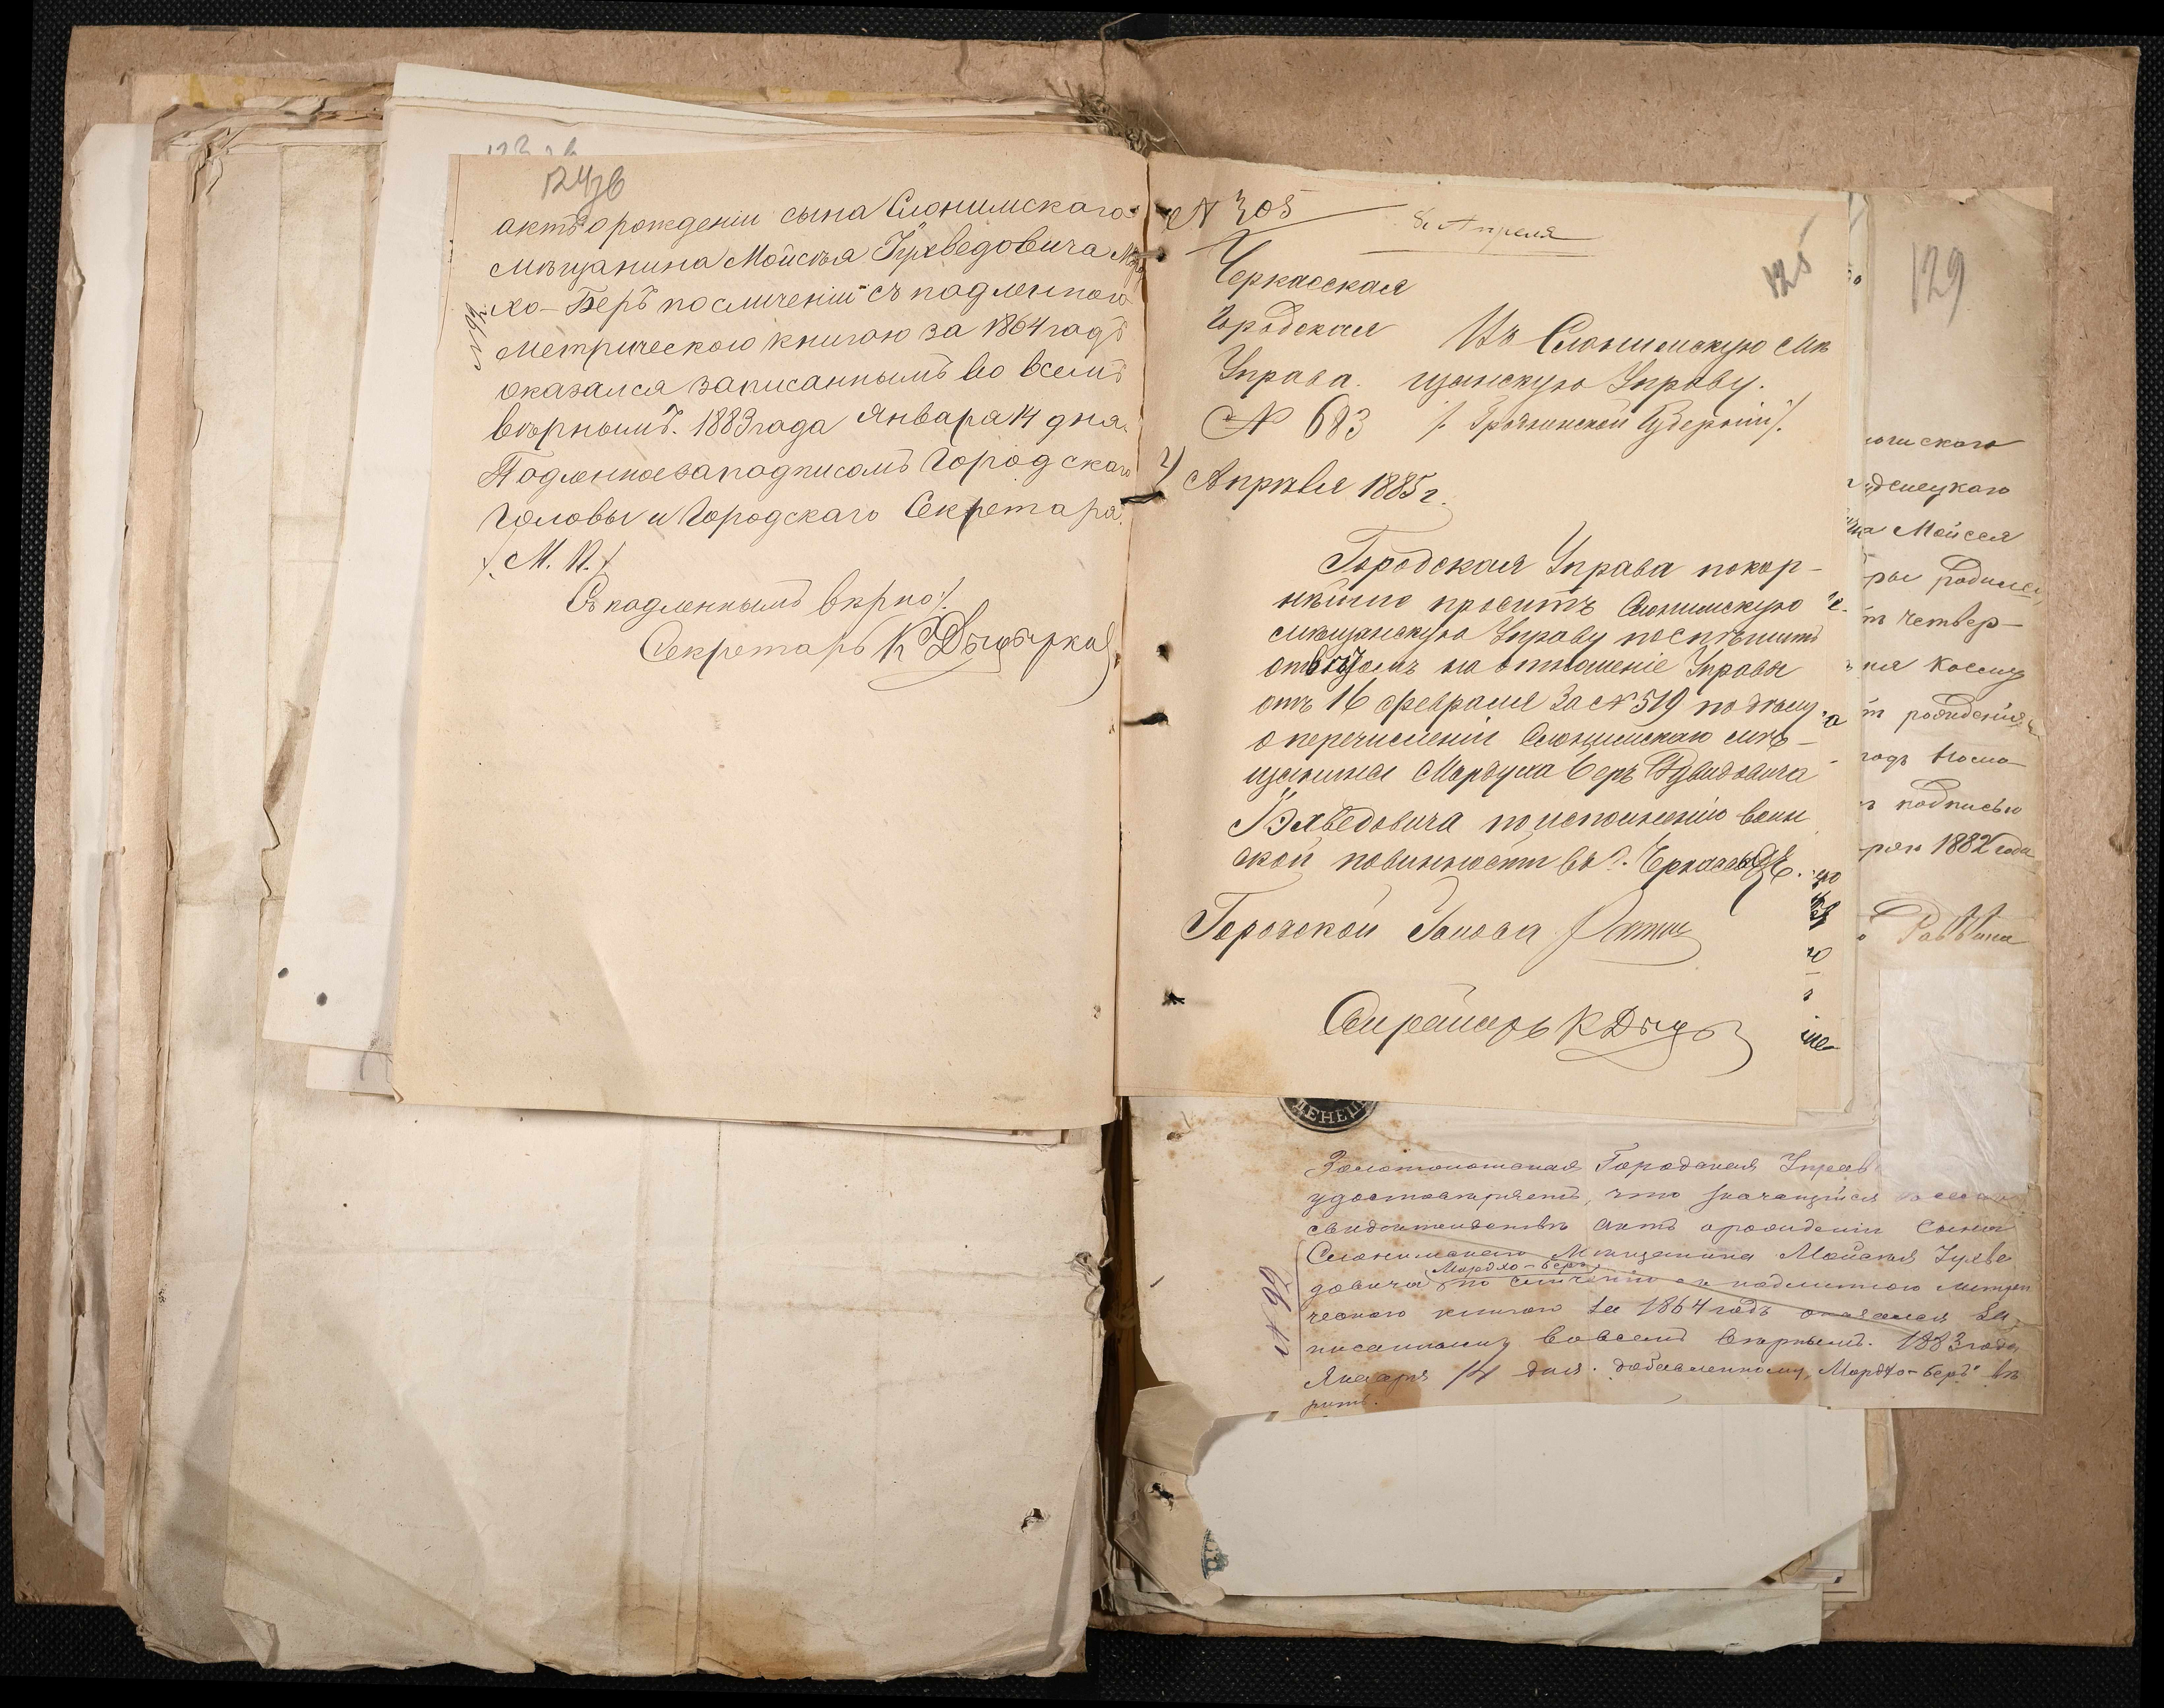 124 зв
актъ о рожденіи сына Слонимскаго
мѣщанина Мойсѣя Гухведовича Морд
хо-Беръ по сличеніи съ подлинною
метрическою книгою за 1864 годъ
оказался записаннымъ во всемъ
вѣрнымъ. 1883 года Января 14 дня.
Подлинное за подписомъ Городскаго
Головы и Городскаго Секретаря.
/М. П./
Съ подленнымъ вѣрно/.
Секретарь К
№ 305
8 Апреля
125
Черкасская
Городская
Управа.
№ 683
Апрѣля 1885 г.
Въ Слонимскую мѣ
щанскую Управу.
/. Гродненской Губерніи /.
Городская Управа покор-
нѣйше проситъ Слонимскую
мѣщанскую Управу поспѣшить
отвѣтомъ на отношеніе Управы
отъ 16 февраля за № 519 по дѣлу
о перечисленіи Слонимскаго мѣ-
щанина Мордуха Беръ
по исполненію воин
ской повинности въ г. Черкассы
Городской Голова
Секретарь К
129
Мойсея
четвер-
рожденія
подписью
1882 года
Раввина
ДЕНЕЦ
Золотоношская Городская Управ
удостовѣряетъ, что значащійся
свидѣтельствѣ актъ о рожденіи сына
Слонимскаго Мѣщанина Мойсея Гухве
Мордхо-Беръ
довича по сличенію съ подлинною метри
ческою книгою за 1864 годъ оказался за
писаннымъ вовсемъ вѣрнымъ. 1883 года
Января 14 дня. добавленному „Мордхо-Беръ" вѣ
рить.
№ 92